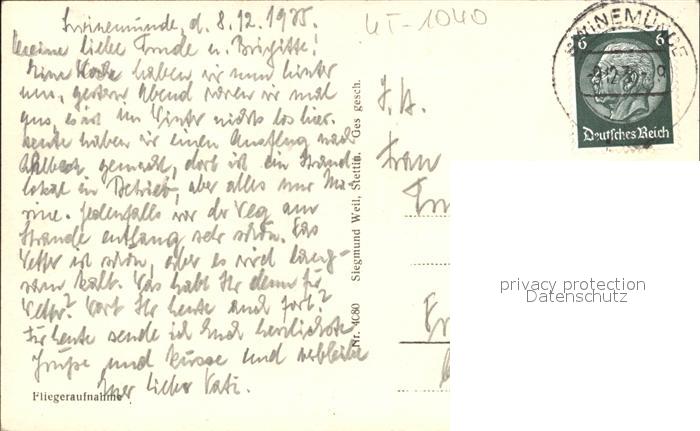 Swinemünde, d. 8.12.1935.
Meine liebe Trude u. Brigitte!
Eine Woche haben wir nun hinter
uns, gestern Abend waren wir mal
aus, es ist im Winter nichts los hier.
Heute haben wir einen Ausflug nach
Ahlbeck gemacht, dort ist ein Strand-
lokal in Betrieb, aber alles nur Ma-
rine. Jedenfalls war der Weg am
Strande entlang sehr schön. Das
Wetter ist schön, aber es wird lang-
sam kalt. Was habt Ihr denn für
Wetter? Wart Ihr heute auch fort?
Für heute sende ich Euch herzlichste
Grüße und Küsse und verbleibe
Euer lieber Vati.
Fliegeraufnahme
Nr. 4080 Siegmund Weil, Stettin. Ges gesch.
4T-1040
Frau
SWINEMÜNDE
6 6
Deutsches Reich
privacy protection
Datenschutz